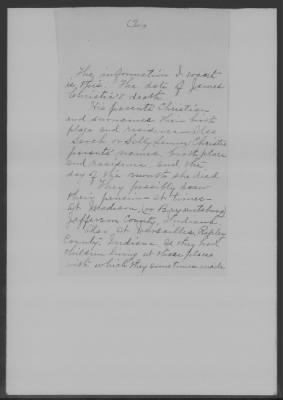 Copy
The information I want
is, this. The date of James
Christie's death
His parents Christian
and surnames their birth
place and residence — Also
Sarah or Sally Christie
parents names, birth place
and residence, and the
day of the month she died
They possibly drew
their pension — at times —
at Madison, (or Bryantsburg)
Jefferson County, Indiana
Also at Versailles, Ripley
County, Indiana. as they had
children living at those places
with which they sometimes made